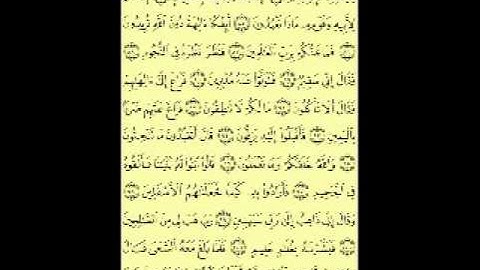 لِأَبِيهِ وَقَوْمِهِ مَاذَا تَعْبُدُونَ أَئِفْكًا ءَالِهَةً دُونَ ٱللَّهِ تُرِيدُونَ
فَمَا ظَنُّكُم بِرَبِّ ٱلْعَٰلَمِينَ فَنَظَرَ نَظْرَةً فِى ٱلنُّجُومِ
فَقَالَ إِنِّى سَقِيمٌ فَتَوَلَّوْا۟ عَنْهُ مُدْبِرِينَ فَرَاغَ إِلَىٰٓ ءَالِهَتِهِمْ
فَقَالَ أَلَا تَأْكُلُونَ مَا لَكُمْ لَا تَنطِقُونَ فَرَاغَ عَلَيْهِمْ ضَرْبًۢا
بِٱلْيَمِينِ فَأَقْبَلُوٓا۟ إِلَيْهِ يَزِفُّونَ قَالَ أَتَعْبُدُونَ مَا تَنْحِتُونَ
وَٱللَّهُ خَلَقَكُمْ وَمَا تَعْمَلُونَ قَالُوا۟ ٱبْنُوا۟ لَهُۥ بُنْيَٰنًا فَأَلْقُوهُ
فِى ٱلْجَحِيمِ فَأَرَادُوا۟ بِهِۦ كَيْدًا فَجَعَلْنَٰهُمُ ٱلْأَسْفَلِينَ
وَقَالَ إِنِّى ذَاهِبٌ إِلَىٰ رَبِّى سَيَهْدِينِ رَبِّ هَبْ لِى مِنَ ٱلصَّٰلِحِينَ
فَبَشَّرْنَٰهُ بِغُلَٰمٍ حَلِيمٍ فَلَمَّا بَلَغَ مَعَهُ ٱلسَّعْىَ قَالَ